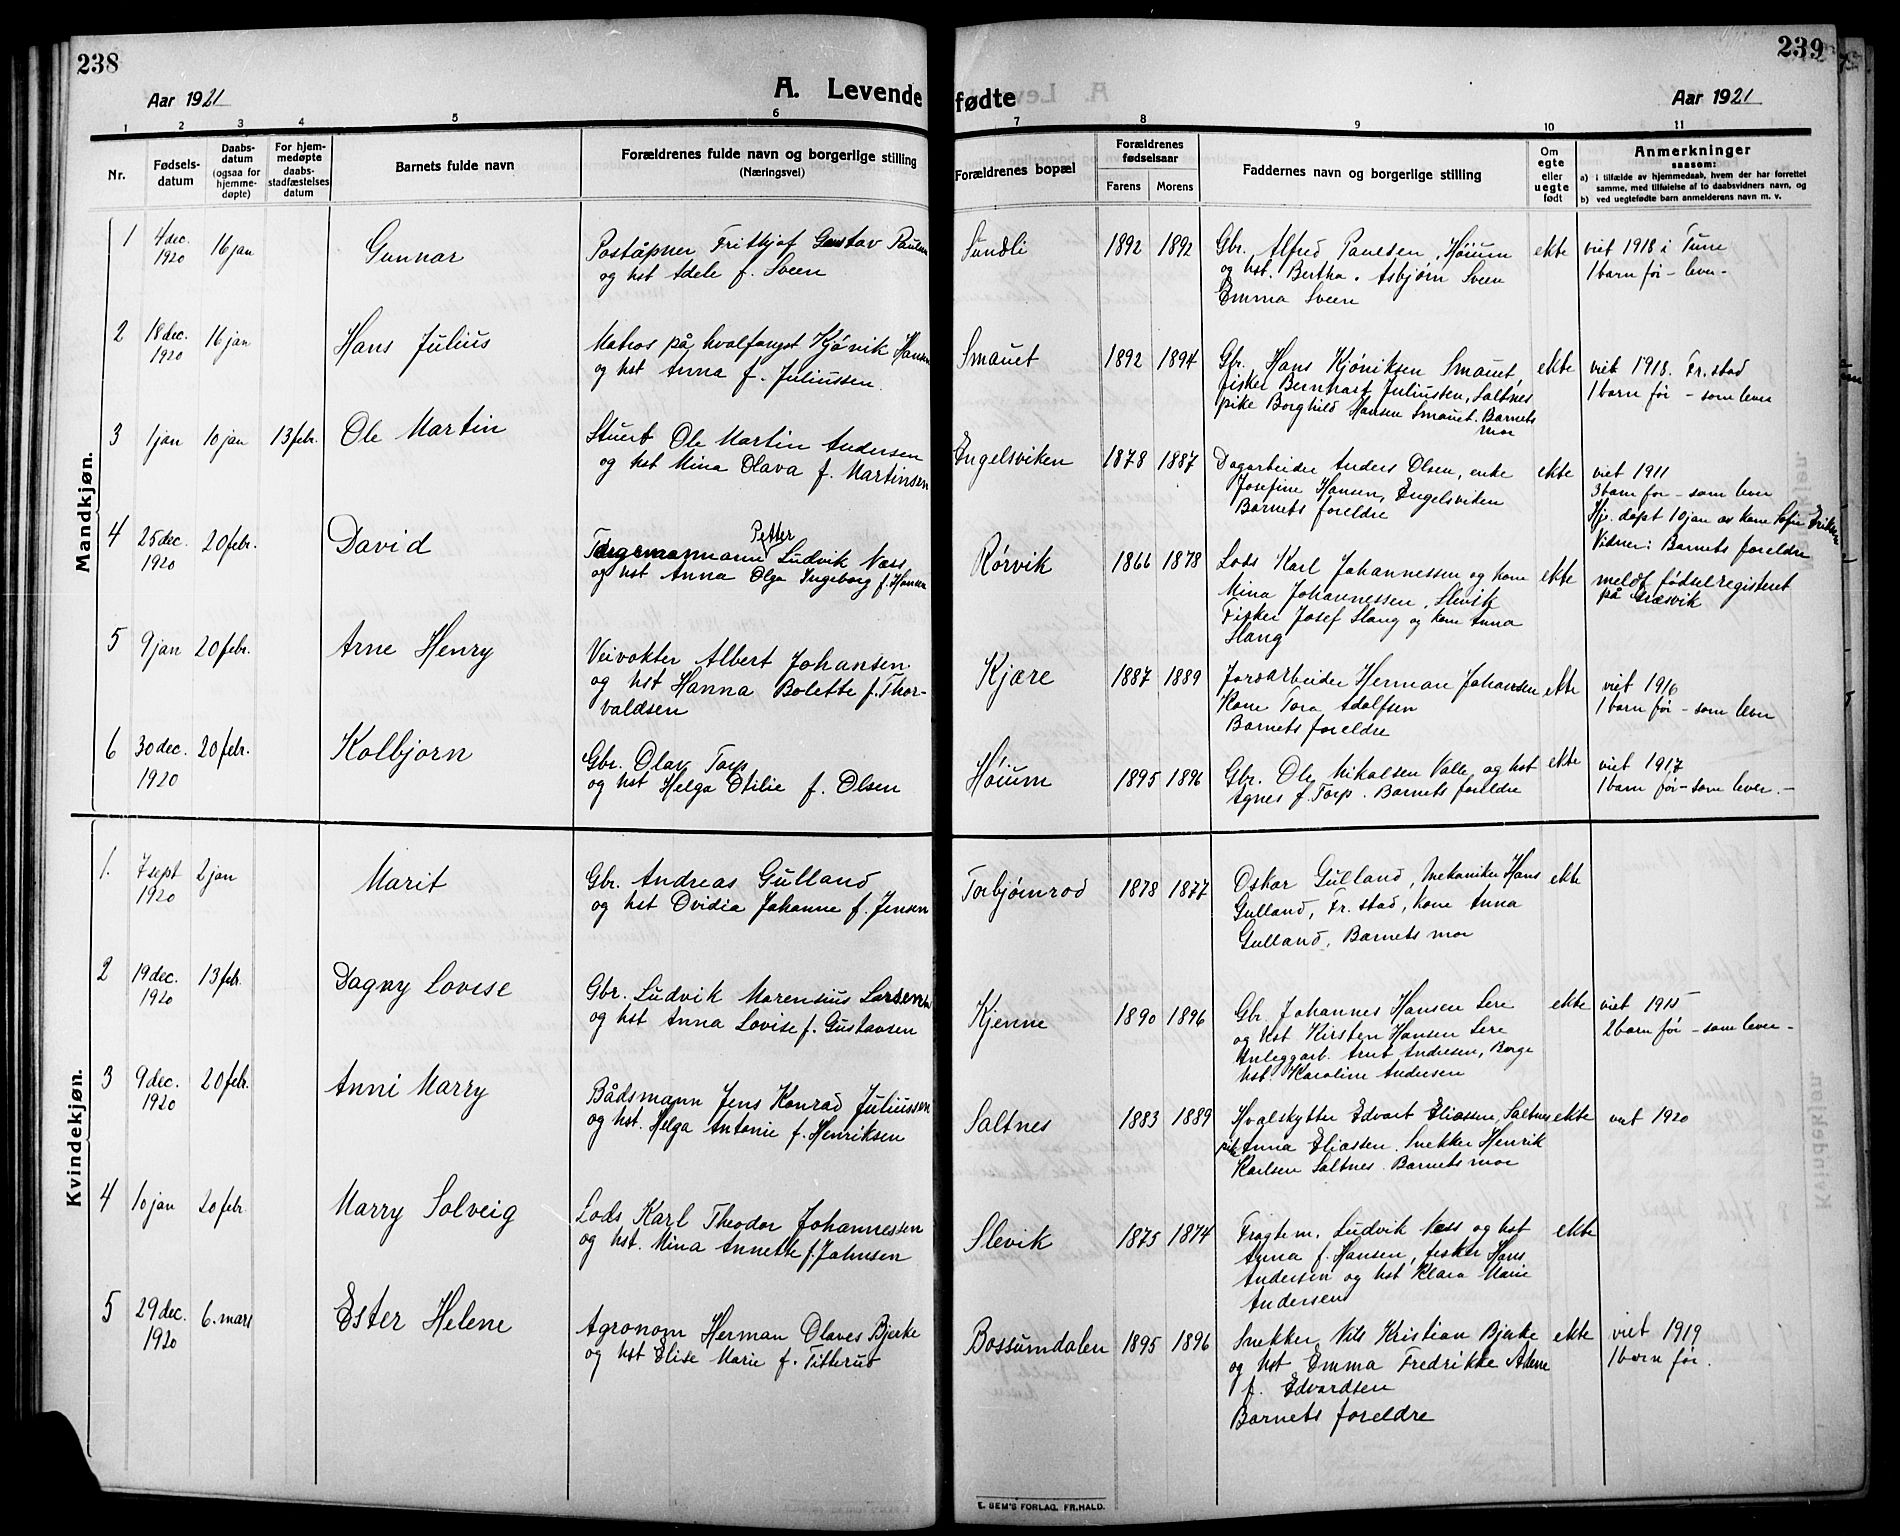 238
Aar 1921
A. Levende
1 2 3 4 5 6
Nr.
Fødsels-
datum
Daabs-
datum
(ogsaa for
hjemme-
døpte)
For hjem-
medøpte
daabs-
stadfæstelses
datum
Barnets fulde navn
Forældrenes fulde navn og borgerlige stilling
(Næringsvei)
Mandkjøn.
1 4 dec. 1920 16 jan Gunnar
Poståpner Fritkjof Gustav Paulsen
og hst Adele f. Sveen
2 18 dec. 1920 16 jan Hans Julius
Matros på hvalfangst Kjönik Hansen
og hst Anna f. Juliussen.
3 1 jan 10 jan 13 febr. Ole Martin
Stuert Ole Martin Andersen
og hst Mina Olava f. Martinsen
4 25 dec. 1920 20 febr. David
Petter
Ludvik Næss
og hst Anna Olga Ingeborg f. Hansen
5 9 jan 20 febr. Arne Henry
Veivokter Albert Johansen
og hst Hanna Bolette f. Thor-
valdsen
6 30 dec. 1920 20 febr. Kolbjørn
Gbr. Olav Torp
og hst Helga Otilie f. Olsen
Kvindekjøn.
1. 7 sept 1920 2 jan Marit
Gbr. Andreas Gulland
og hst Ovidia Johanne f. Jensen
2 19 dec. 1920 13 febr. Dagny Lovise
Gbr. Ludvik Marensius Larsen
og hst Anna Lovise f. Gustavsen
3 9 dec. 1920 20 febr. Anni Marry
Bådsmann Jens Konrad Juliussen
og hst. Helga Antonie f. Henriksen
4 10 jan 20 febr Marry Solveig
Lods Karl Theodor Johannessen
og hst. Mina Annette f. Johnsen
5 29 dec. 1920 6. mars Ester Helene
Agronom Herman Olaves Bjerke
og hst Elise Marie f. Titterud
239
fødte
Aar 1921
7 8 9 10 11
Forældrenes bopæl
Forældrenes
fødselsaar
Farens Morens
Faddernes navn og borgerlige stilling
Om
egte
eller
uegte
født
Anmerkninger
saasom:
a) i tilfælde av hjemmedaab, hvem der har forrettet
samme, med tilføielse af to daabsvidners navn, og
b) ved uegtefødte barn anmelderens navn m. v.
Sundli 1892 1892
Gbr. Alfred Paulsen, Høium
og hst. Bertha. Asbjørn Sveen
Emma Sveen
ekte
viet 1918 i Tune
1 barn før - lever -
Smauet 1892 1894
Gbr. Hans Kjøniksen Smauet,
fisker Bernhart Juliussen, Saltnes
pike Borghild Hansen Smauet. Barnets
mor
ekte
viet 1918. Fr.stad
1 barn før - som lever
Engelsviken 1878 1887
Dagarbeider Anders Olsen, enke
Josefine Hansen, Engelsviken
Barnets foreldre
ekte
viet 1911
3 barn før - som lever
Hje. døpt 10 jan av kone Sofie Eriksen
Vidner: Barnets foreldre
Rørvik 1866 1878
Lods Karl Johannessen og kone
Mina Johannessen, Slevik
Fisker Josef Slang og kone Anna
Slang
ekte
meldt fødselregisteret
på Græsvik
Kjære 1887 1889
Jordarbeider Herman Johansen
Kone Tora Adolfsen
Barnets foreldre
ekte
viet 1916
1 barn før - som lever
Høium 1895 1896
Gbr. Ole Nikolsen Valle og hst
Agnes f. Torp. Barnets foreldre
ekte
viet 1917
1 barn før - som lever. -
Torbjørnrød 1878 1877
Oskar Gulland, Mekaniker Hans
Gulland, Fr.stad, kone Anna
Gulland, Barnets mor
ekte
Kjenne 1890 1896
Gbr. Johannes Hansen Lere
og hst Kirsten Hansen Lere
Anleggarb. Arnt Andresen, Borge
hst. Karoline Andersen
ekte
viet 1915
2 barn før - som lever -
Saltnes 1883 1889
Hvalskytter Edvart Eliassen, Saltnes
pike Anna Eliassen. Snekker Henrik
Karlsen Saltnes. Barnets mor
ekte
viet 1920
Slevik 1875 1874
Fragtem. Ludvik Næss og hst
Anna f. Hansen, fisker Hans
Andersen og hst Klara Marie
Andersen
ekte
Bossumdalen 1895 1896
Snekker Nils Kristian Bjerke
og hst Emma Fredrikke
f. Edvardsen
Barnets foreldre
ekte
viet 1919
1 barn før.
E. SEM'S FORLAG, FR.HALD.